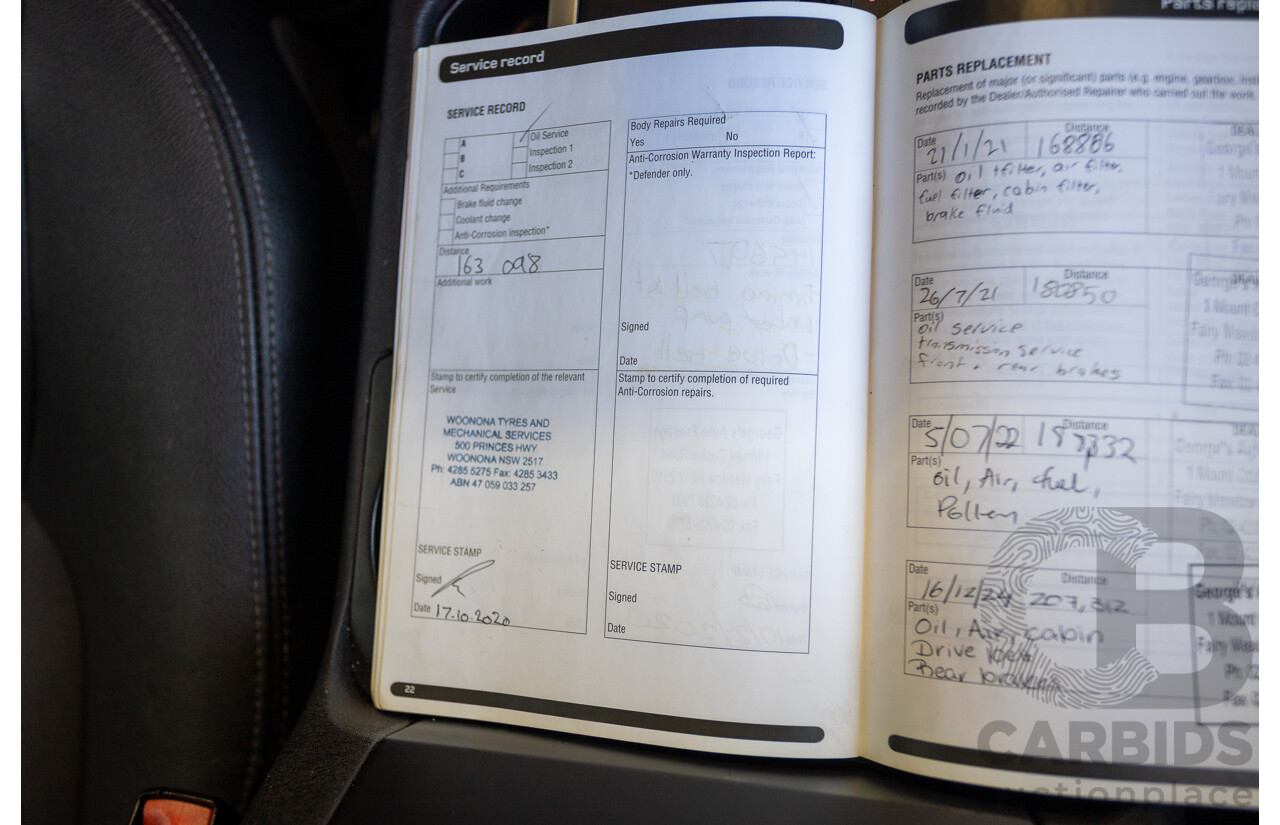 Service record
SERVICE RECORD
A
B
C
Oil Service
Inspection 1
Inspection 2
Additional Requirements
Brake fluid change
Coolant change
Anti-Corrosion inspection*
Distance
163 098
Additional work
Stamp to certify completion of the relevant
Service
WOONONA TYRES AND
MECHANICAL SERVICES
500 PRINCES HWY
WOONONA NSW 2517
Ph: 4285 5275 Fax: 4285 3433
ABN 47 059 033 257
SERVICE STAMP
Signed
Date 17.10.2020
22
Body Repairs Required
Yes No
Anti-Corrosion Warranty Inspection Report:
*Defender only.
Signed
Date
Stamp to certify completion of required
Anti-Corrosion repairs.
SERVICE STAMP
Signed
Date
Parts
PARTS REPLACEMENT
Replacement of major (or significant) parts (e.g. engine, gearbox,
recorded by the Dealer/Authorised Repairer who carried out the work.
Date Distance
21/1/21 168886
Part(s) oil + filter, air filter,
fuel filter, cabin filter,
brake fluid
Date Distance
26/7/21 180850
Part(s)
oil service
transmission service
front + rear brakes
George's
1 Mount
Fairy
Ph:
Fax:
Date Distance
5/07/22
Part(s)
oil, Air, fuel,
Pollen
George's
1 Mount
Fairy Meadow
Ph:
Date Distance
16/12/24 207,312
Part(s)
Oil, Air, cabin
Drive belt
Rear
George's
1 Mount
Fairy
Ph:
Fax:
CB
CARBIDS
auctionplace